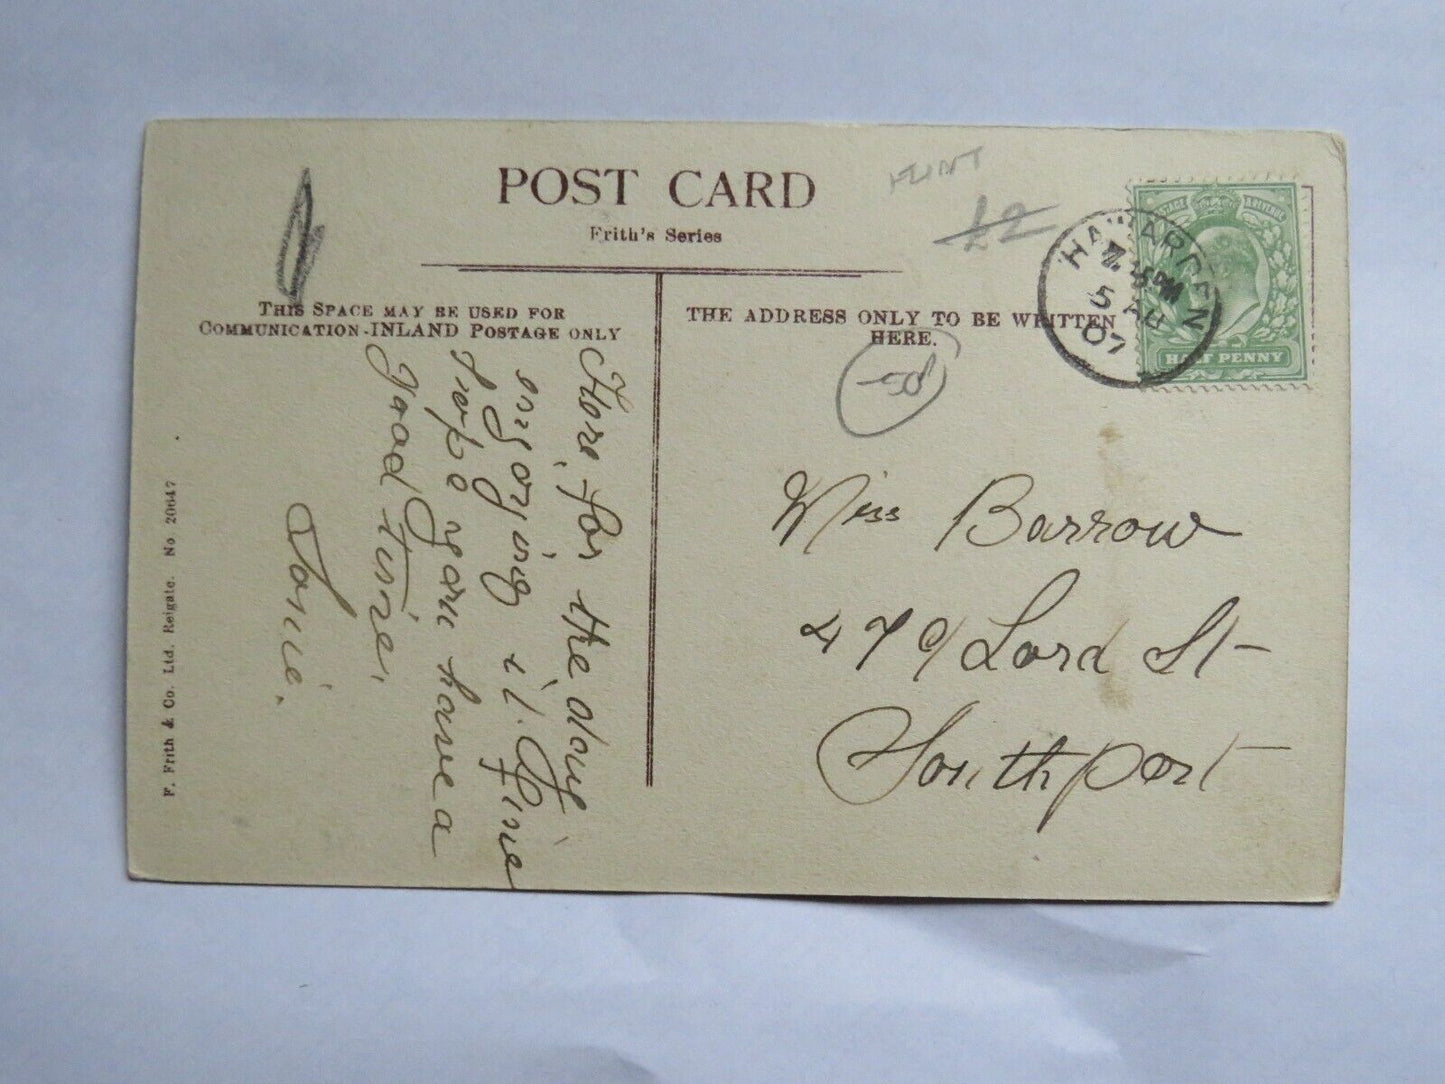 POST CARD
Frith's Series
FLINT
£2
THIS SPACE MAY BE USED FOR
COMMUNICATION-INLAND POSTAGE ONLY
THE ADDRESS ONLY TO BE WRITTEN
HERE.
HAWARDEN
7.45PM
5
07
HALF PENNY
Here for the day
enjoying it. fine
hope you have a
good time.
Miss Barrow
479 Lord St
Southport
F. Frith & Co. Ltd. Reigate. No 20647